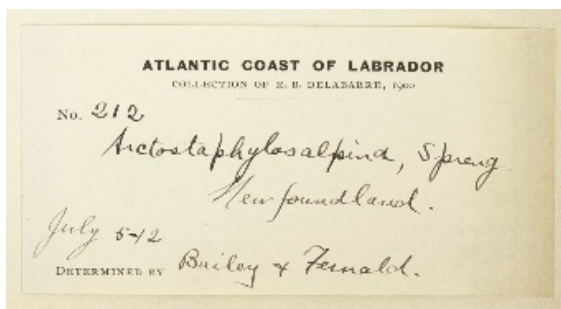 ATLANTIC COAST OF LABRADOR
COLLECTION OF E. B. DELABARRE, 1900
No. 212
Arctostaphylos alpina, Spreng
Newfoundland.
July 5-12
DETERMINED BY Bailey & Fernald.